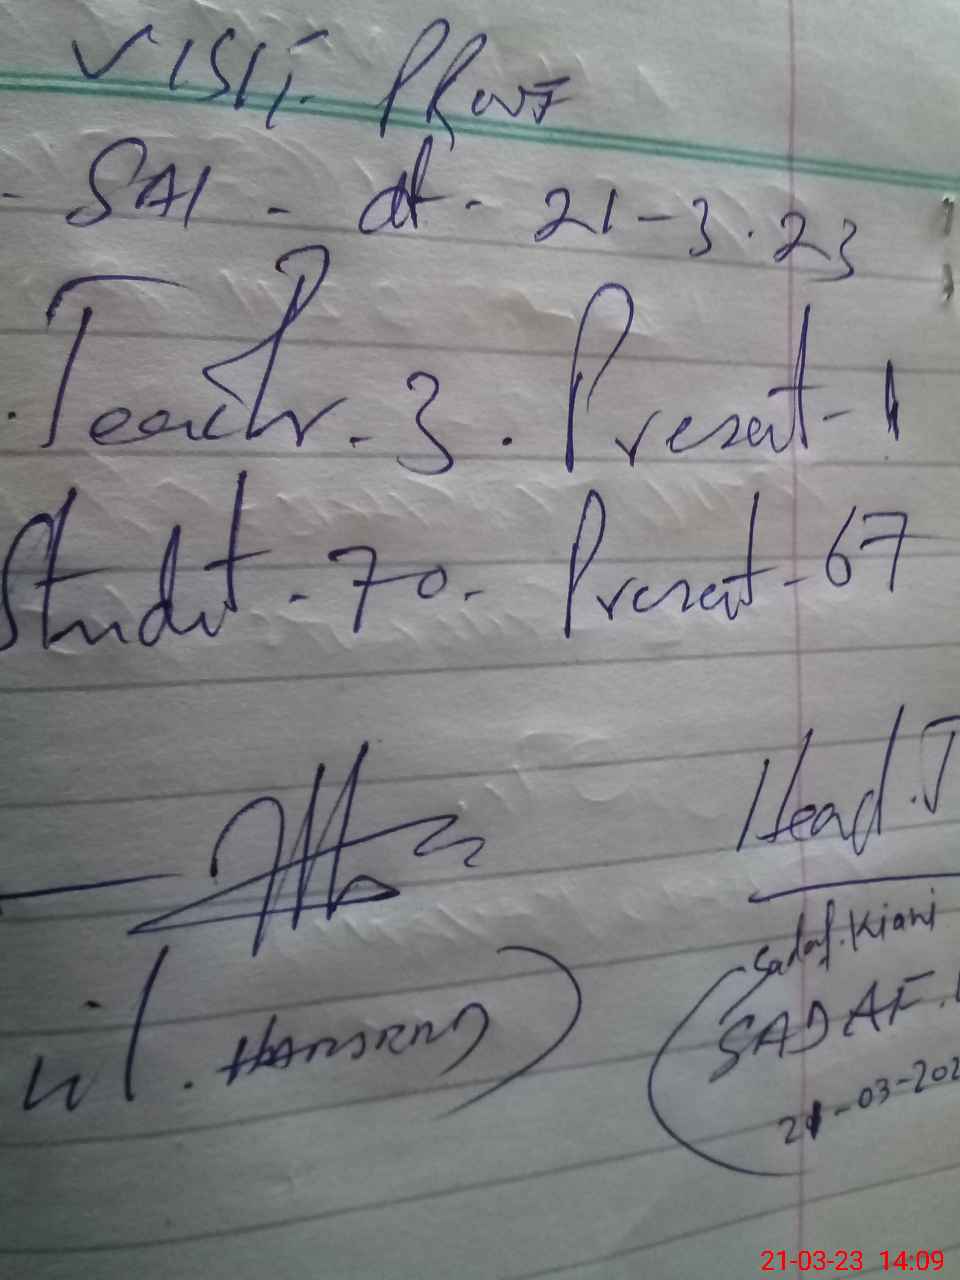 VISIT PROOF
- SAI - dt - 21-3-23
. Teacher - 3 . Present - 1
Student - 70 - Present - 67
Head . T
Sadaf.Kiani
SADAF.
21-03-202
21-03-23 14:09